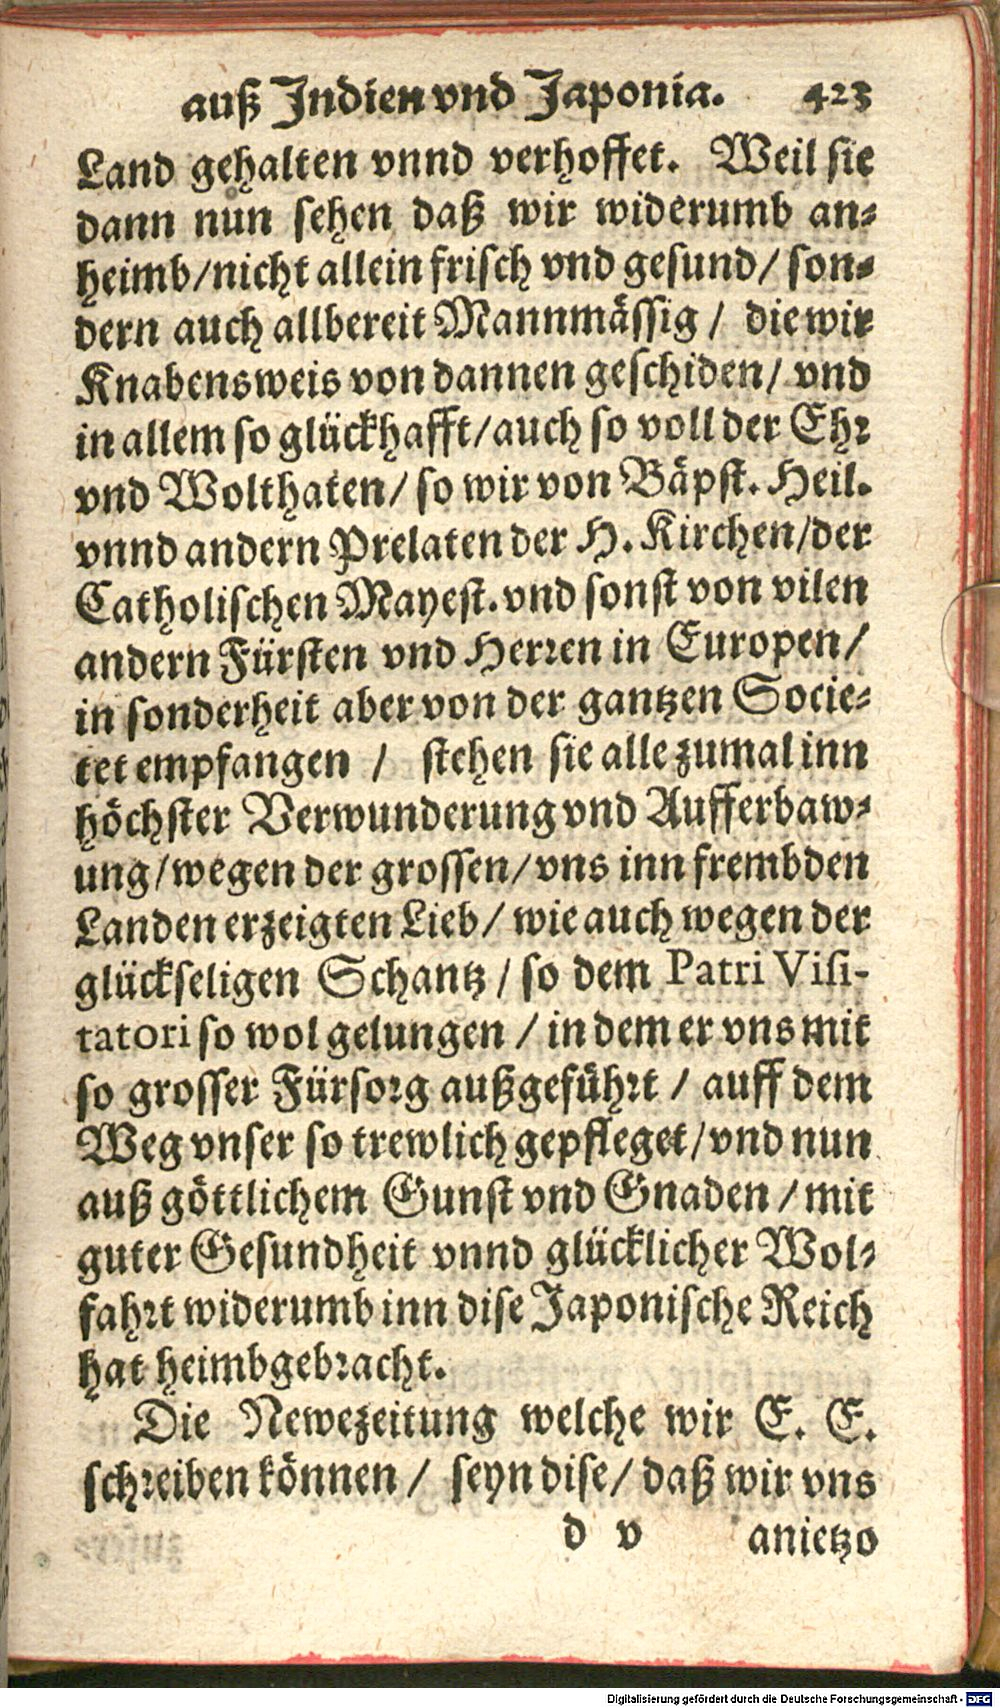 auß Jndien vnd Japonia. 423
Land gehalten vnnd verhoffet. Weil sie
dann nun sehen daß wir widerumb an⸗
heimb/nicht allein frisch vnd gesund/ son⸗
dern auch allbereit Mannmässig / die wir
Knabensweis von dannen geschiden/ vnd
in allem so glückhafft/auch so voll der Ehr
vnd Wolthaten/ so wir von Bäpst. Heil.
vnnd andern Prelaten der H. Kirchen/der
Catholischen Mayest. vnd sonst von vilen
andern Fürsten vnd Herren in Europen/
in sonderheit aber von der gantzen Socie⸗
tet empfangen / stehen sie alle zumal inn
höchster Verwunderung vnd Aufferbaw⸗
ung/wegen der grossen/vns inn frembden
Landen erzeigten Lieb/ wie auch wegen der
glückseligen Schantz / so dem Patri Visi-
tatori so wol gelungen / in dem er vns mit
so grosser Fürsorg außgeführt / auff dem
Weg vnser so trewlich gepfleget/vnd nun
auß göttlichem Gunst vnd Gnaden / mit
guter Gesundheit vnnd glücklicher Wol⸗
fahrt widerumb inn dise Japonische Reich
hat heimbgebracht.
Die Newezeitung welche wir E. E.
schreiben können / seyn dise/ daß wir vns
d v anietzo
Digitalisierung gefördert durch die Deutsche Forschungsgemeinschaft - DFG